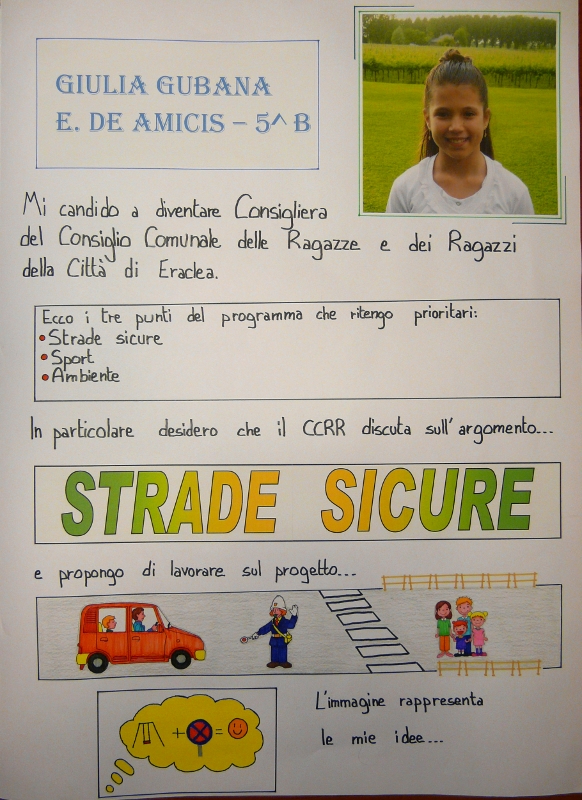 GIULIA GUBANA
E. DE AMICIS – 5^ B
Mi candido a diventare Consigliera
del Consiglio Comunale delle Ragazze e dei Ragazzi
della Città di Eraclea.
Ecco i tre punti del programma che ritengo prioritari:
•Strade sicure
•Sport
•Ambiente
In particolare desidero che il CCRR discuta sull'argomento...
STRADE SICURE
e propongo di lavorare sul progetto...
+ =
L'immagine rappresenta
le mie idee...